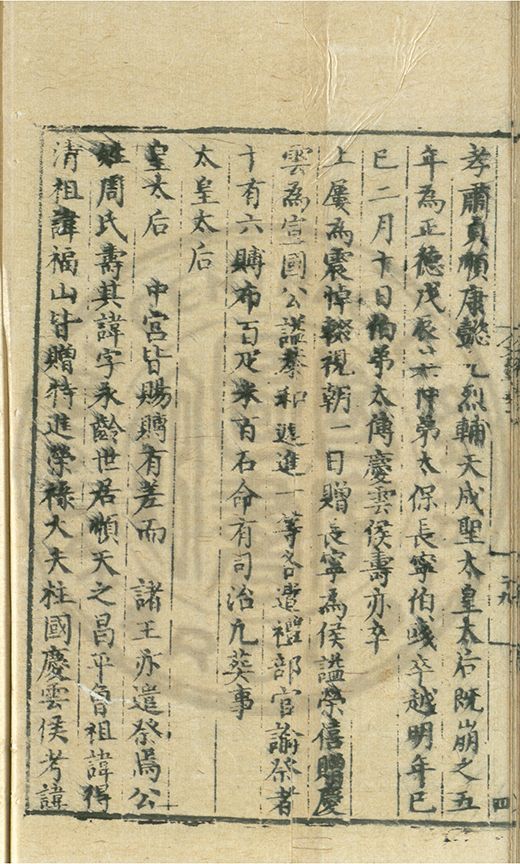 孝肅貞順康懿光烈輔天成聖太皇太后既崩之五
年為正德戊辰其仲弟太保長寧伯彧卒越明年己
巳二月十日伯弟太傅慶雲侯壽亦卒
上屢為震悼輟視朝一日贈長寧為侯謚榮僖贈慶
雲為宣國公謚恭和遞進一等各遣禮部官諭祭者
十有六賻布百疋米百石命有司治凡葬事
太皇太后
皇太后 中宮皆賜賻有差而 諸王亦遣祭焉公
姓周氏壽其諱字永齡世居順天之昌平曾祖諱得
清祖諱福山皆贈特進榮祿大夫柱國慶雲侯考諱
四